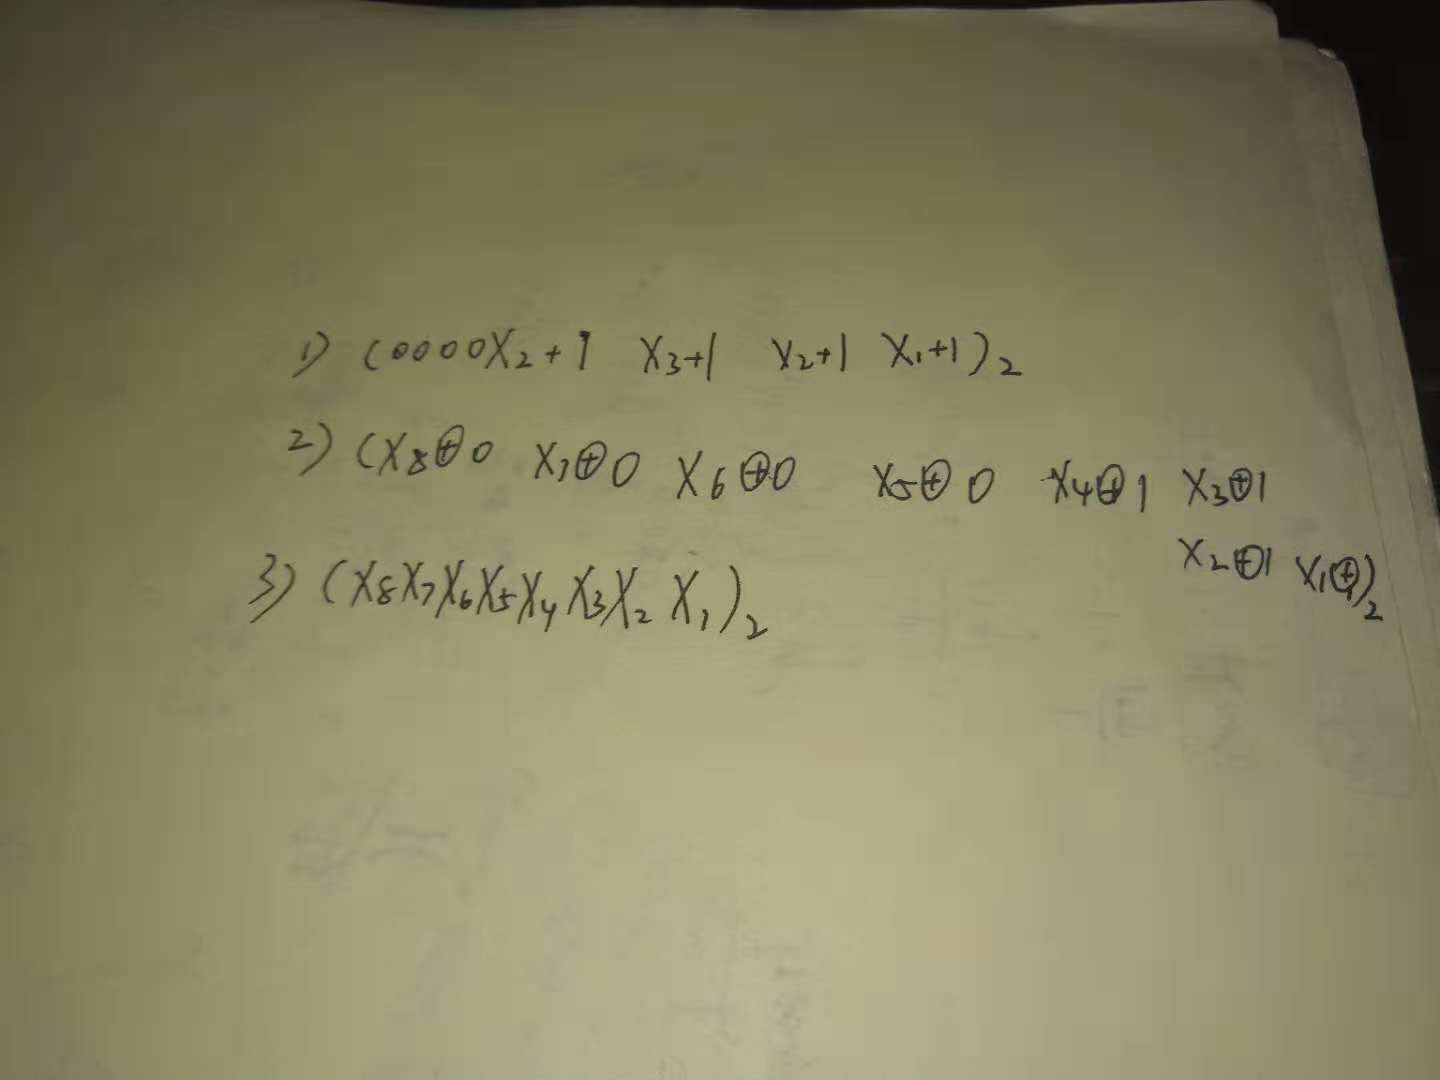 1) (0000X₂+1 X₃+1 X₂+1 X₁+1)₂
2) (X₈⊕0 X₇⊕0 X₆⊕0 X₅⊕0 X₄⊕1 X₃⊕1
X₂⊕1 X₁⊕1)₂
3) (X₈X₇X₆X₅X₄X₃X₂X₁)₂